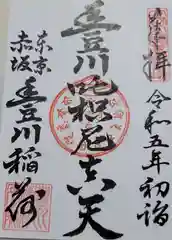 拝
令和五年初詣
豊川吒枳尼真天
東京
赤坂
豊川稲荷